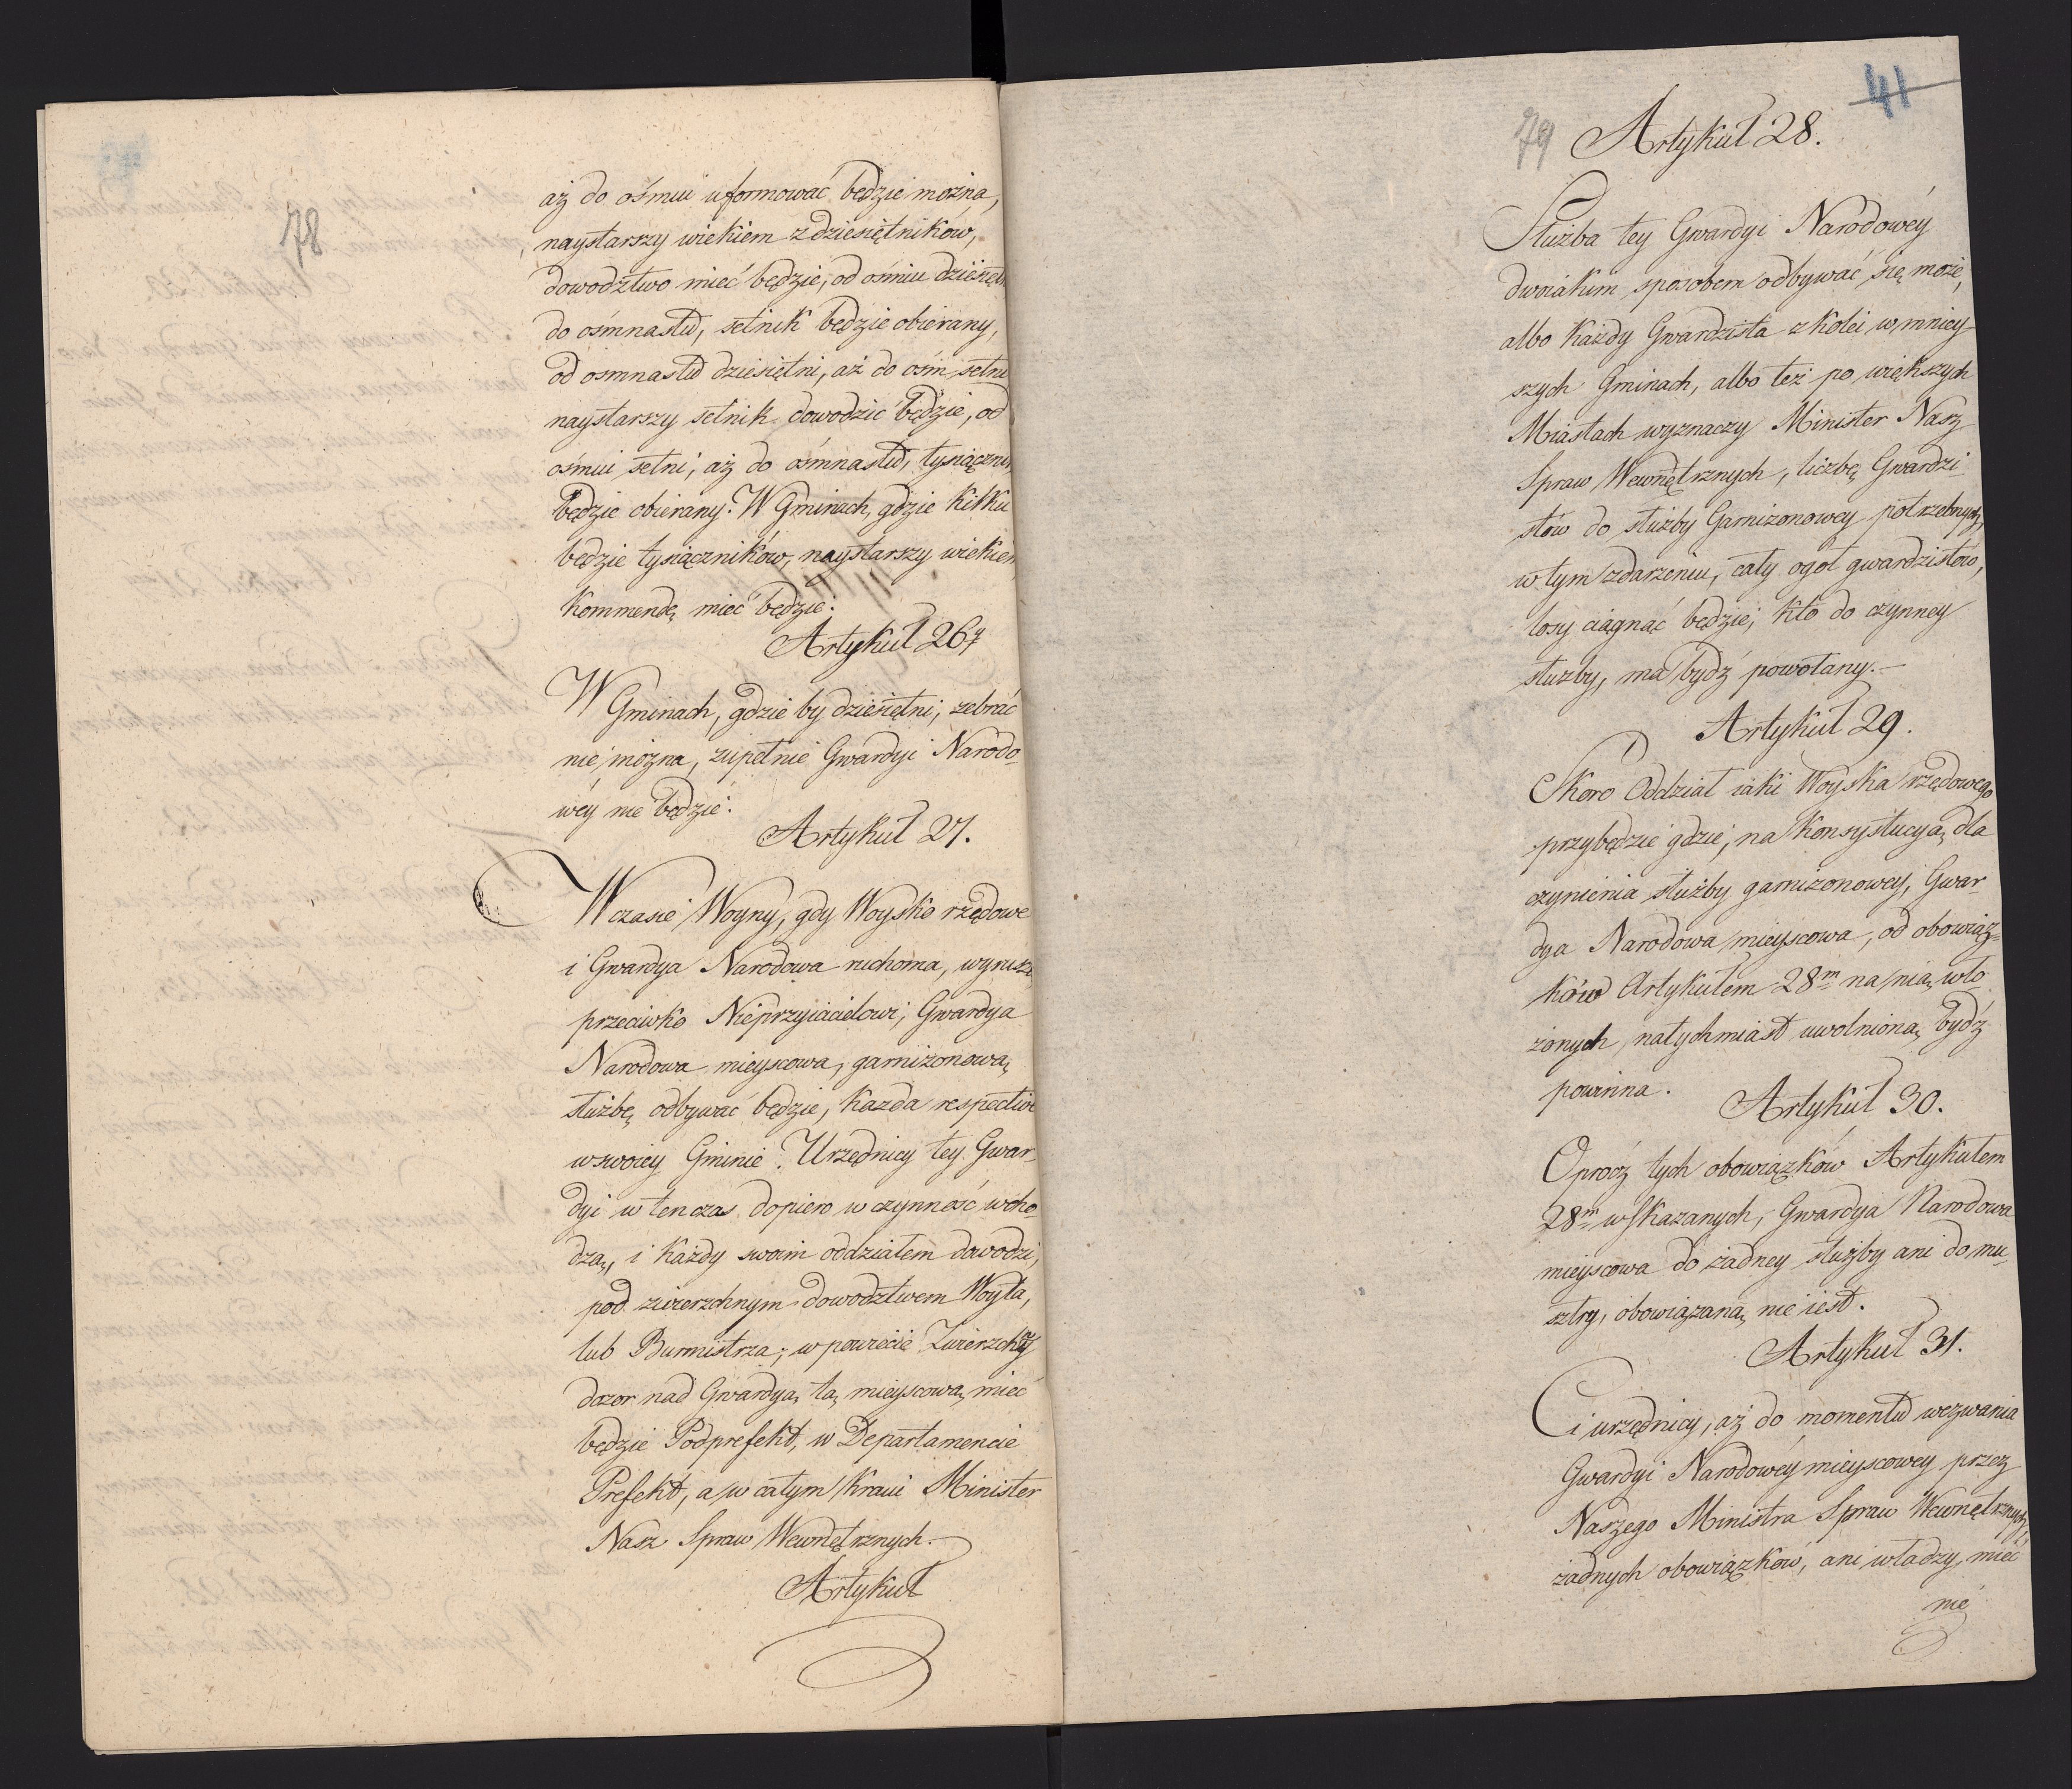 78
aż do ośmiu uformować będzie można,
naystarszy wiekiem z dziesiętników,
dowodztwo mieć będzie, od ośmiu dziesiętn
do ośmnastu, setnik będzie obierany,
od osmnastu dziesiętni, aż do ośm setni
naystarszy setnik dowodzić będzie, od
ośmiu setni, aż do ośmnastu, tysiącznik
będzie obierany. W Gminach, gdzie kilku
będzie tysiączników, naystarszy wiekiem
Kommendę mieć będzie.
Artykuł 26ty
W Gminach, gdzie by dziesiętni, zebrać
nie można, zupełnie Gwardyi Narodo-
wéy nie będzie.
Artykuł 27.
W czasie Woyny, gdy Woysko rzędowe
i Gwardya Narodowa ruchoma, wyrusza
przeciwko Nieprzyiacielowi, Gwardya
Narodowa mieyscowa, garnizonową
służbę odbywać będzie, każda respective
w swoiey Gminie. Urzędnicy tey Gwar-
dyi w ten czas dopiero w czynność wcho-
dzą, i każdy swoim oddziałem dowodzi,
pod zwierzchnym dowodztwem Woyta,
lub Burmistrza; w powiecie Zwierzchny
dozor nad Gwardyą tą mieyscową mieć
będzie Podprefekt, w Departamencie
Prefekt, a w całym Kraiu Minister
Nasz Spraw Wewnętrznych.
Artykuł
41
79
Artykuł 28.
Służba tey Gwardyi Narodowéy
dwoiakim sposobem odbywać się może,
albo każdy Gwardzista z kolei w mniey-
szych Gminach, albo też po większych
Miastach wyznaczy Minister Nasz
Spraw Wewnętrznych, liczbę Gwardzi-
stów do służby Garnizonowey potrzebnych,
w tym zdarzeniu, cały ogół gwardzistów,
losy ciągnąć będzie, kto do czynney
służby, ma bydź powołany.
Artykuł 29.
Skoro Oddział iaki Woyska rzędowego
przybędzie gdzie, na Konsystucyą, dla
czynienia służby garnizonowey, Gwar-
dya Narodowa mieyscowa, od obowiąz-
ków Artykułem 28m na nią wło-
żonych, natychmiast uwolnioną bydź
powinna.
Artykuł 30.
Oprócz tych obowiązków Artykułem
28m wskazanych, Gwardya Narodowa
mieyscowa do żadney służby ani do mu-
sztry, obowiązaną nie iest.
Artykuł 31.
Ci urzędnicy, aż do momentu wezwania
Gwardyi Narodowéy mieyscowey przez
Naszego Ministra Spraw Wewnętrznych,
żadnych obowiązków, ani władzy mieć
nie